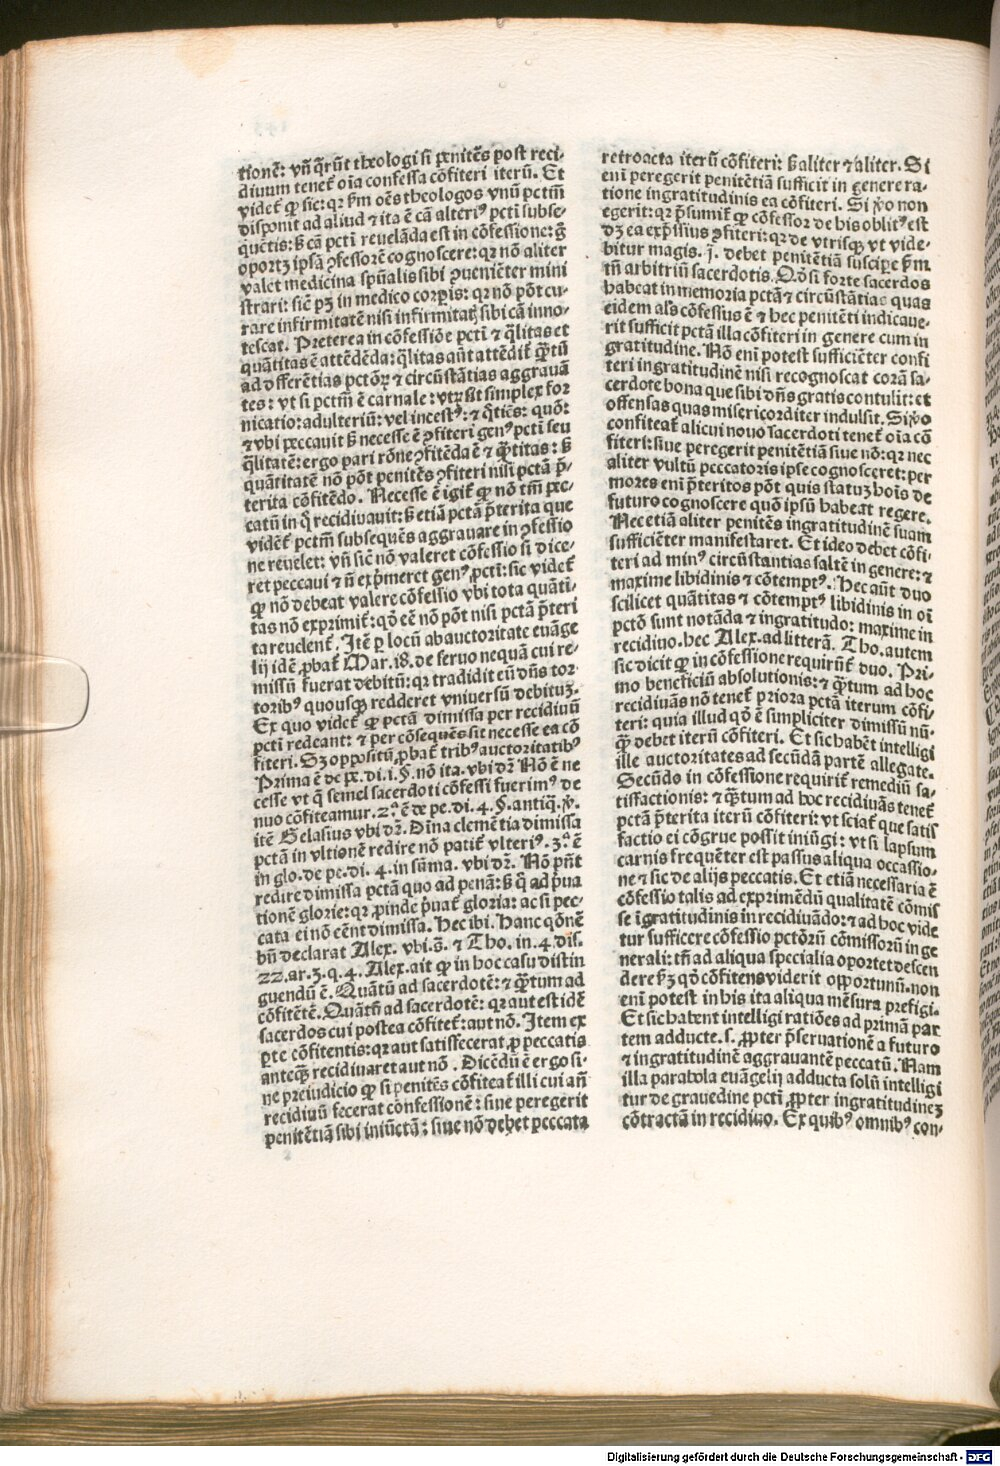 tionē: vñ q̄rūt theologi si penitēs post reci-
diuum tenet͛ oīa confessa cōfiteri iterū. Et
videt͛ ꝙ sic: qꝛ ẜm oēs theologos vnū pctm̄
disponit ad aliud ⁊ ita ē cā alteriꝰ pcti subse-
quētis: ß cā pcti reuelāda est in cōfessione: ḡ
oportꝫ ipsā ꝯfessorē cognoscere: qꝛ nō aliter
valet medicina spūalis sibi ꝯueniēter mini
strari: sic̄ pꝫ in medico corpis: qꝛ nō pōt cu-
rare infirmitatē nisi infirmitatꝭ sibi cā inno-
tescat. Preterea in cōfessiōe pcti ⁊ q̄litas et
quātitas ē attēdēda: q̄litas aūt attēdit͛ q̄ꝫtū
ad differētias pctōꝝ ⁊ circūstātias aggrauā
tes: vt si pctm̄ ē carnale: vtꝝ sit simplex for
nicatio: adulteriū: vel incestꝰ: ⁊ q̄tiēs: quō:
⁊ vbi peccauit ß necesse ē ꝯfiteri genꝰ pcti seu
q̄litatē: ergo pari rōne ꝯfitēda ē ⁊ q̄ꝫtitas: ß
quātitatē nō pōt penitēs ꝯfiteri nisi pctā p̄-
terita cōfitēdo. Necesse ē igit͛ ꝙ nō tm̄ pec-
catū in q̄ recidiuauit: ß etiā pctā p̄terita que
videt͛ pctm̄ subsequēs aggrauare in ꝯfessio
ne reuelet: vñ sic̄ nō valeret cōfessio si dice-
ret peccaui ⁊ ñ exp̄meret genꝰ pcti: sic videt͛
ꝙ nō debeat valere cōfessio vbi tota quāti-
tas nō exprimit͛: qō eē nō pōt nisi pctā p̄teri
ta reuelent͛. Itē ꝑ locū ab auctoritate euāge
lij idē ꝓbat͛ Mar. 18. de seruo nequā cui re-
missū fuerat debitū: qꝛ tradidit eū dñs tor
toribꝰ quousqꝫ redderet vniuersū debituꝫ.
Ex quo videt͛ ꝙ pctā dimissa per recidiuū
pcti redeant: ⁊ per cōsequēs sit necesse ea cō
fiteri. Sꝫ oppositū ꝓbat͛ tribꝰ auctoritatibꝰ
Prima ē de pe. di. i. §. nō ita. vbi dꝛ̄. Nō ē ne
cesse vt q̄ semel sacerdoti cōfessi fuerimꝰ de
nuo cōfiteamur. 2.ª ē de pe. di. 4. §. antiq. ℣.
itē Gelasius vbi dꝛ̄. Dīna clemētia dimissa
pctā in vltionē redire nō patit͛ vlteriꝰ. 3.ª ē
in glo. de pe. di. 4. in sūma. vbi dꝛ̄. Nō pn̄t
redire dimissa pctā quo ad penā: ß q̄ ad p̄ua
tionē glorie: qꝛ ꝓinde p̄uat͛ gloria: ac si pec
cata ei nō eēnt dimissa. Hec ibi. Hanc qōnē
bñ declarat Alex. vbi.s̄. ⁊ Tho. in. 4. dis.
22. ar. 3. q. 4. Alex. ait ꝙ in hoc casu distin
guendū ē. Quātū ad sacerdotē: ⁊ q̄ꝫtum ad
cōfitētē. Quātū ad sacerdotē: qꝛ aut est idē
sacerdos cui postea cōfitet͛: aut nō. Item ex
pte cōfitentis: qꝛ aut satisfecerat ꝓ peccatis
anteqꝫ recidiuaret aut nō. Dicēdū ē ergo si-
ne preiudicio ꝙ si penitēs cōfiteat͛ illi cui añ
recidiuū fecerat confessionē: siue peregerit
penitētiā sibi iniūctā: siue nō debet peccata
retroacta iterū cōfiteri: ß aliter ⁊ aliter. Si
eni peregerit penitētiā sufficit in genere ra-
tione ingratitudinis ea cōfiteri. Si ℣o non
egerit: qꝛ p̄sumit͛ ꝙ cōfessor de his oblitꝰ est
dꝫ ea exp̄ssius ꝯfiteri: qꝛ de vtrisqꝫ vt vide-
bitur magis. j. debet penitētiā suscipe ẜm
tn̄ arbitriū sacerdotis. Qō si forte sacerdos
habeat in memoria pctā ⁊ circūstātias quas
eidem als̄ cōfessus ē ⁊ hec penitēti indicaue-
rit sufficit pctā illa cōfiteri in genere cum in
gratitudine. Nō eni potest sufficiēter confi
teri ingratitudinē nisi recognoscat corā sa-
cerdote bona que sibi dñs gratis contulit: et
offensas quas misericorditer indulsit. Si ℣o
confiteat͛ alicui nouo sacerdoti tenet͛ oīa cō
fiteri: siue peregit penitētiā siue nō: qꝛ nec
aliter vultū peccatoris ipse cognosceret: per
mores eni p̄teritos pōt quis statuꝫ hoīs de
futuro cognoscere quō ipsū habeat regere.
Nec etiā aliter penitēs ingratitudinē suam
sufficiēter manifestaret. Et ideo debet cōfi-
teri ad minꝰ circūstantias saltē in genere: ⁊
maxime libidinis ⁊ cōtemptꝰ. Hec aūt duo
scilicet quātitas ⁊ cōtemptꝰ libidinis in oī
pctō sunt notāda ⁊ ingratitudo: maxime in
recidiuo. hec Alex. ad litterā. Tho. autem
sic dicit ꝙ in cōfessione requirūt͛ duo. Pri-
mo beneficiū absolutionis: ⁊ q̄ꝫtum ad hoc
recidiuās nō tenet͛ priora pctā iterum cōfi-
teri: quia illud qō ē simpliciter dimissū nū-
q̄ꝫ debet iterū cōfiteri. Et sic habēt intelligi
ille auctoritates ad secūdā partē allegate.
Secūdo in cōfessione requirit͛ remediū sa-
tisfactionis: ⁊ q̄ꝫtum ad hoc recidiuās tenet͛
pctā p̄terita iterū cōfiteri: vt sciat͛ que satis
factio ei cōgrue possit iniūgi: vt si lapsum
carnis frequēter est passus aliqua occassio-
ne ⁊ sic de alijs peccatis. Et etiā necessaria ē
cōfessio talis ad exprimēdū qualitatē cōmis
se īgratitudinis in recidiuādo: ⁊ ad hoc vide
tur sufficere cōfessio pctōrū cōmissorū in ge
nerali: tn̄ ad aliqua specialia oportet descen
dere ẜꝫ qō cōfitens viderit opportunū. non
eni potest in his ita aliqua mēsura prefigi.
Et sic habent intelligi ratiōes ad primā par
tem adducte. s. ꝓpter p̄seruationē a futuro
⁊ ingratitudinē aggrauantē peccatū. Nam
illa parabola euāgelij adducta solū intelligi
tur de grauedine pcti ꝓpter ingratitudineꝫ
cōtractā in recidiuo. Ex quibꝰ omnibꝰ con-
Digitalisierung gefördert durch die Deutsche Forschungsgemeinschaft - DFG